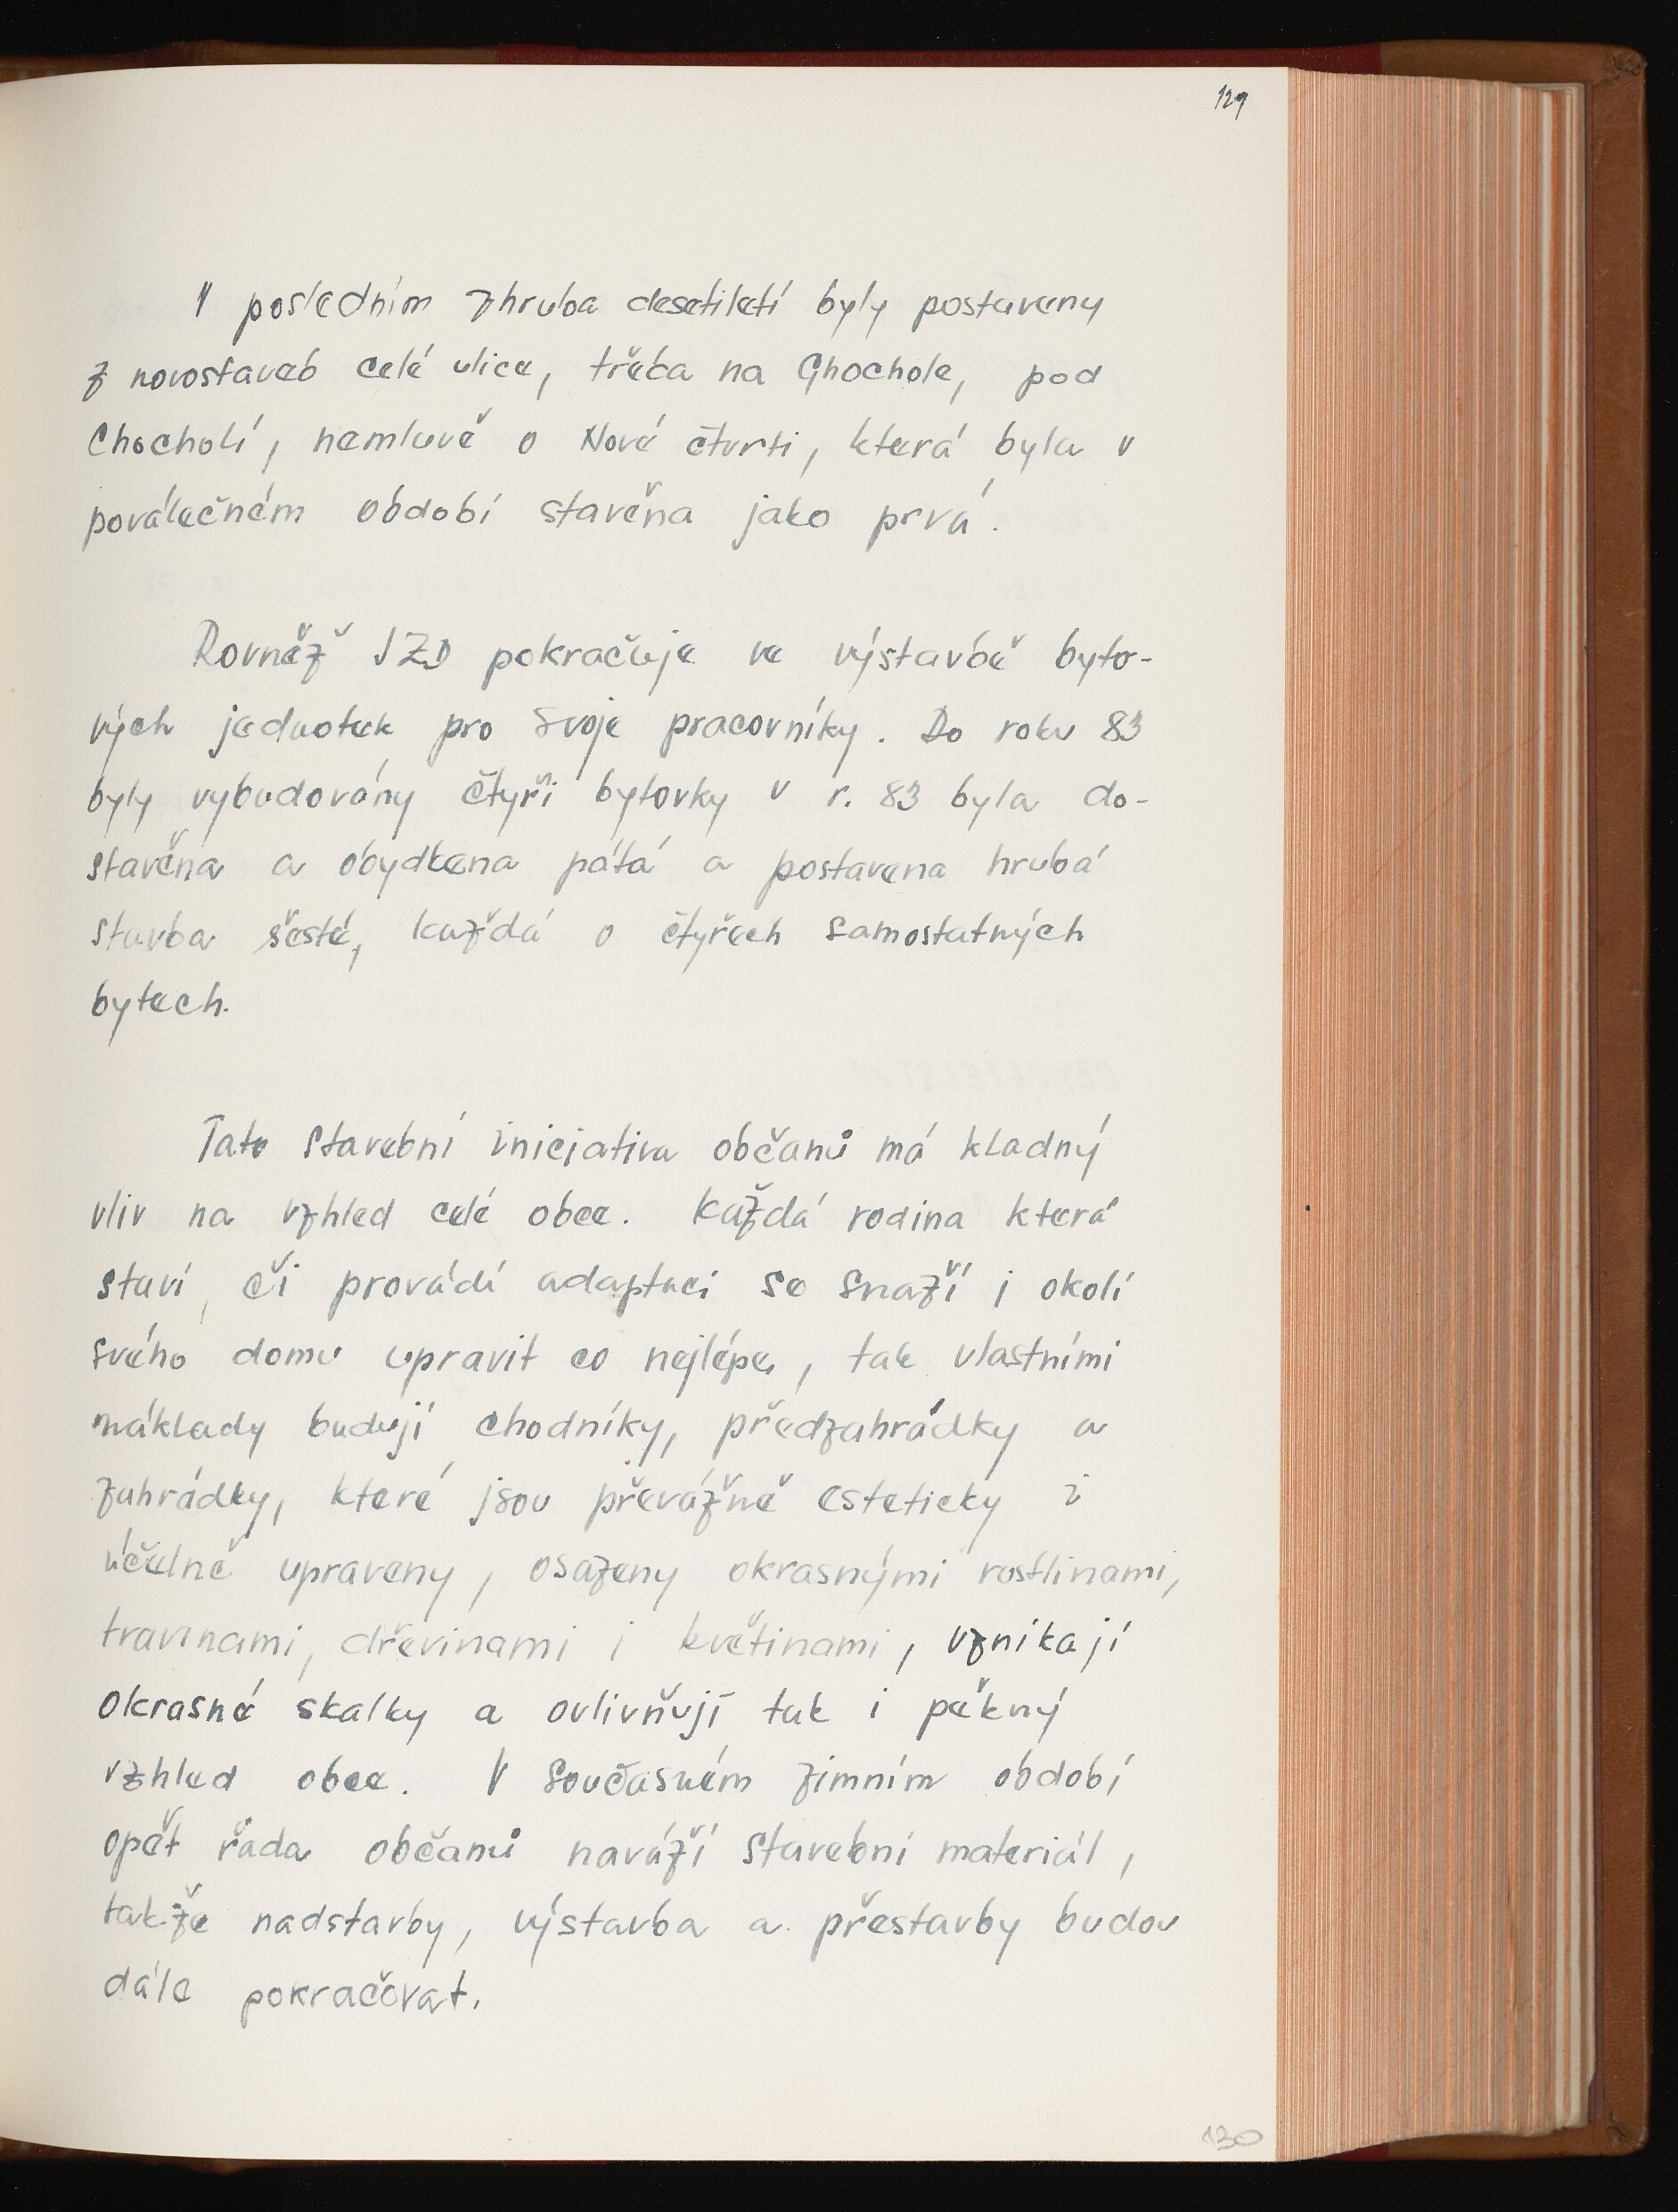 129
V posledním zhruba desetiletí byly postaveny
z novostaveb celé ulice, třeba na Chochole, pod
Chocholí, nemluvě o Nové čtvrti, která byla v
poválečném období stavěna jako prvá.
Rovněž JZD pokračuje ve výstavbě byto-
vých jednotek pro svoje pracovníky. Do roku 83
byly vybudovány čtyři bytovky v r. 83 byla do-
stavěna a obydlena pátá a postavena hrubá
stavba šesté, každá o čtyřech samostatných
bytech.
Tato stavební iniciativa občanů má kladný
vliv na vzhled celé obce. Každá rodina která
staví, či provádí adaptaci se snaží i okolí
svého domu upravit co nejlépe, tak vlastními
náklady budují chodníky, předzahrádky a
zahrádky, které jsou převážně esteticky i
účelně upraveny, osazeny okrasnými rostlinami,
travinami, dřevinami i květinami, vznikají
okrasné skalky a ovlivňují tak i pěkný
vzhled obce. V současném zimním období
opět řada občanů naváží stavební materiál,
takže nadstavby, výstavba a přestavby budou
dále pokračovat.
130